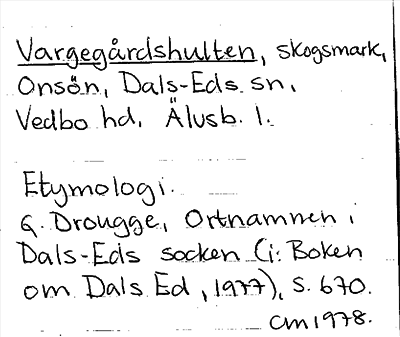 Vargegårdshulten, skogsmark,
Onsön, Dals-Eds sn.
Vedbo hd. Älvsb. l.
Etymologi.
G. Drougge, Ortnamnen i
Dals-Eds socken (i: Boken
om Dals Ed, 1977), s. 670.
CM 1978.